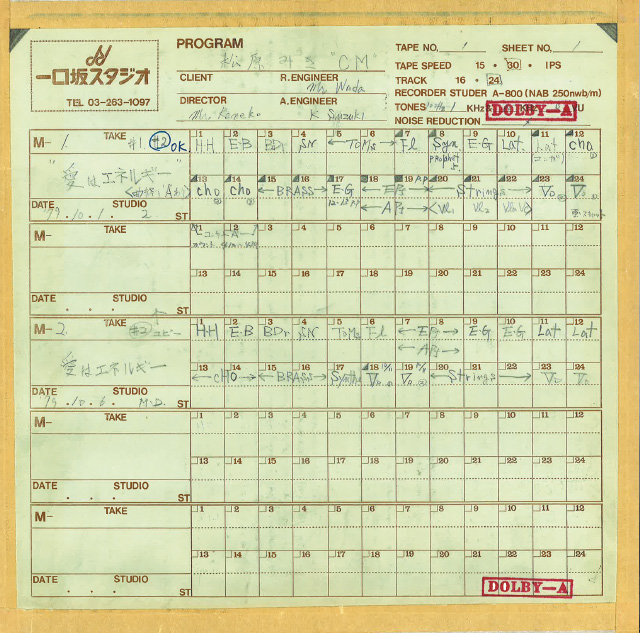 一口坂スタジオ
TEL 03-263-1097
PROGRAM 松原みき "CM"
CLIENT R.ENGINEER Mr. Wada
DIRECTOR Mr. Kaneko A.ENGINEER K Suzuki
TAPE NO. 1 SHEET NO. 1
TAPE SPEED 15 · 30 · IPS
TRACK 16 · 24
RECORDER STUDER A-800 (NAB 250nwb/m)
TONES
NOISE REDUCTION
DOLBY–A
M- 1 TAKE #1 #2 OK
1 2 3 4 5 6 7 8 9 10 11 12
HH E·B BDr SN ←ToMs→ Fl Syn E·G L. Lat cho
"愛はエネルギー"
13 14 15 16 17 18 19 20 21 22 23 24
cho cho ←BRASS→ E·G ←EPf→ ←Strings→ Vo Vo
←APf→
DATE '79.10.1 STUDIO 2 ST
M- TAKE
1 2 3 4 5 6 7 8 9 10 11 12
13 14 15 16 17 18 19 20 21 22 23 24
DATE STUDIO ST
M- 2 TAKE #2 コピー
1 2 3 4 5 6 7 8 9 10 11 12
HH E·B BDr SN ToMs Fl ←EPf→ E·G E·G Lat Lat
←APf→
愛はエネルギー
13 14 15 16 17 18 19 20 21 22 23 24
←cHo→ ←BRASS→ Synthe Vo Vo ←Strings→ Vo Vo
DATE '79.10.6. STUDIO M.D. ST
M- TAKE
1 2 3 4 5 6 7 8 9 10 11 12
13 14 15 16 17 18 19 20 21 22 23 24
DATE . . . STUDIO ST
M- TAKE
1 2 3 4 5 6 7 8 9 10 11 12
13 14 15 16 17 18 19 20 21 22 23 24
DATE . . . STUDIO ST
DOLBY–A